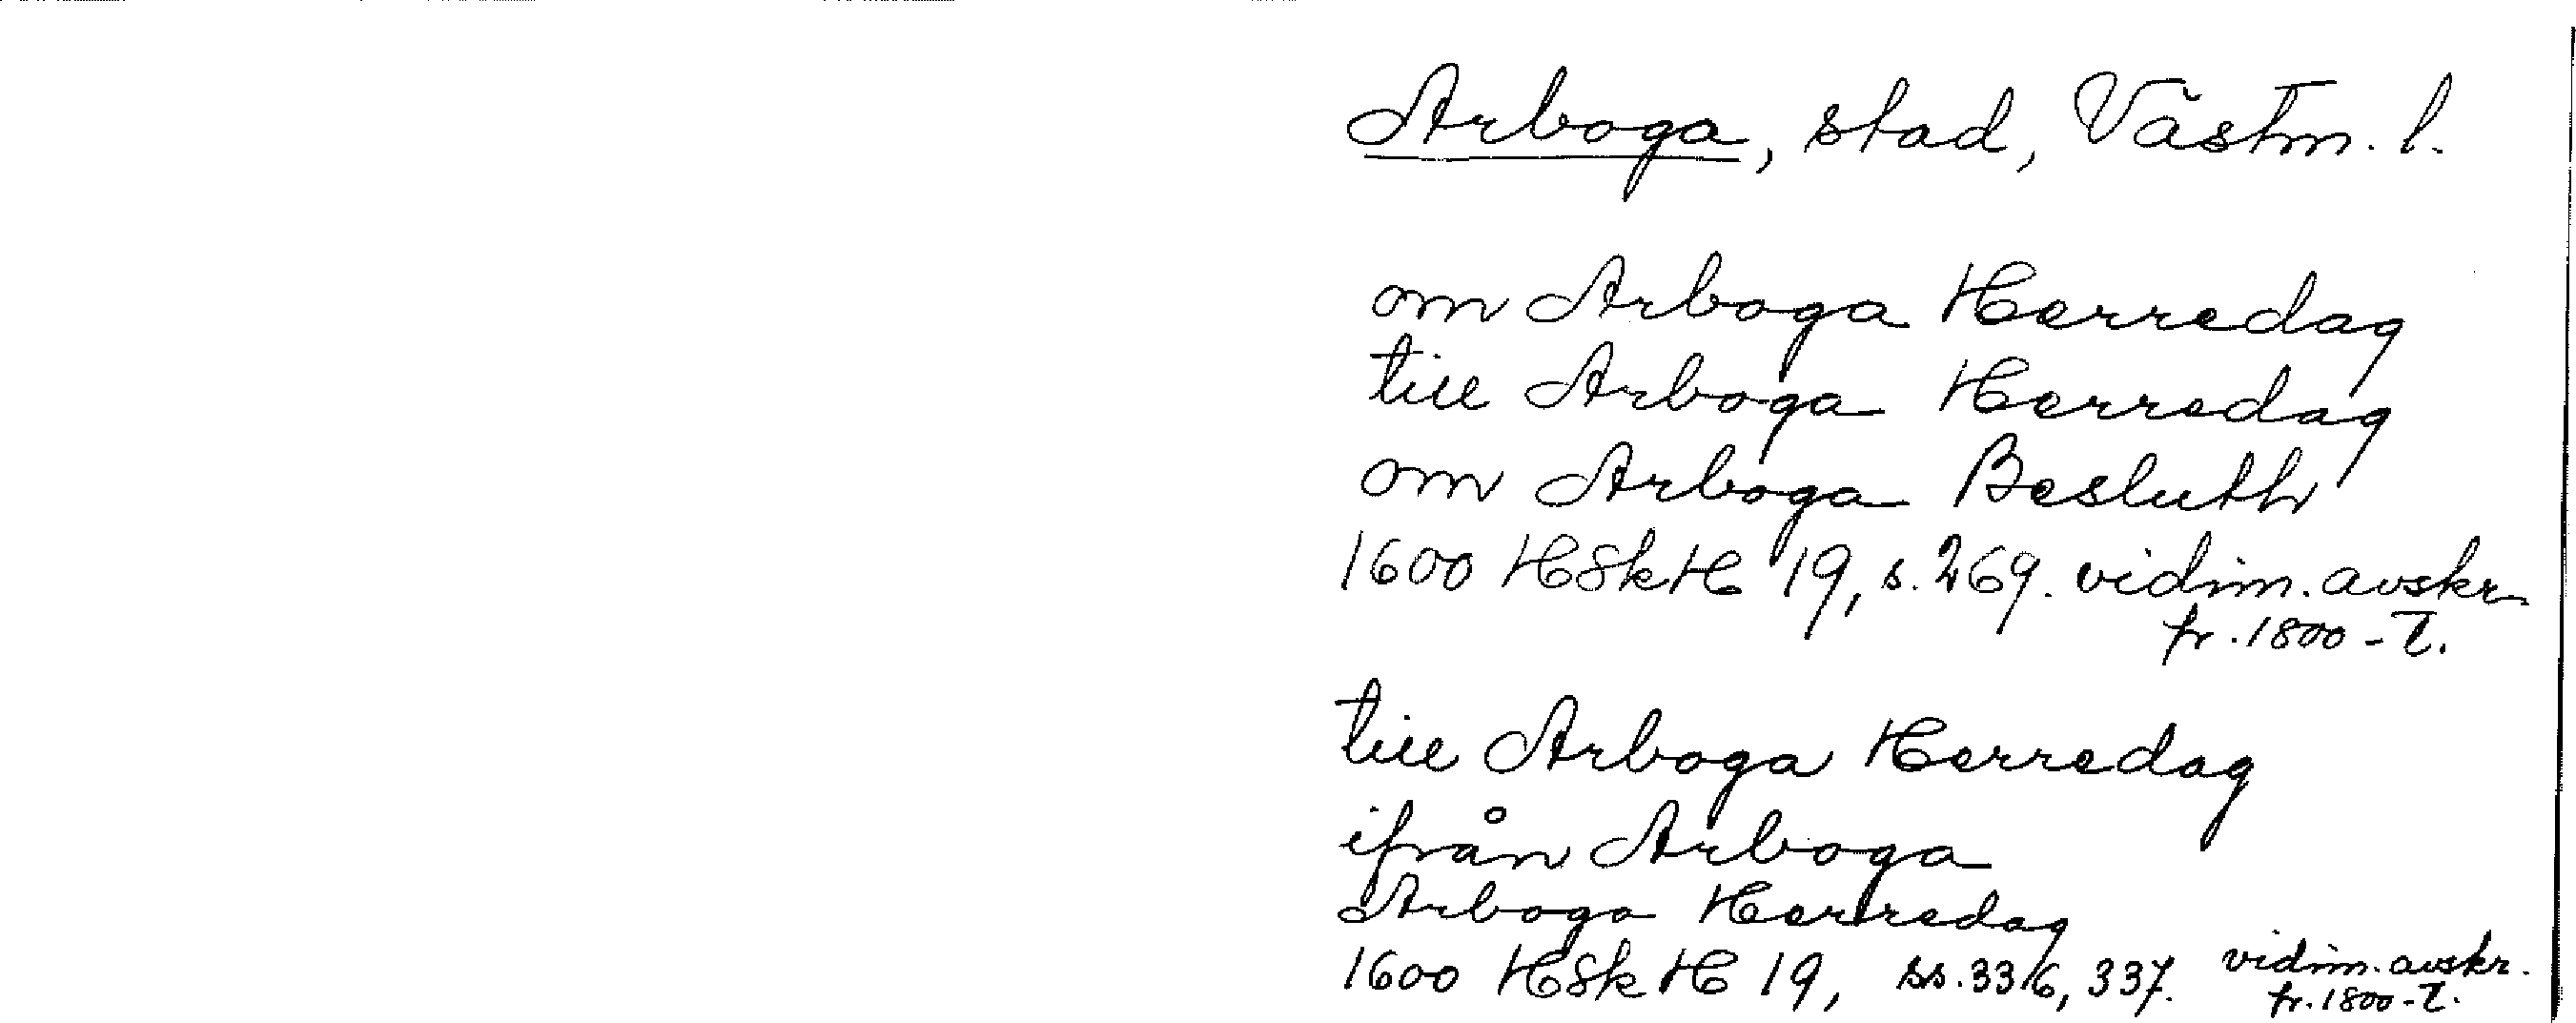 Arboga, stad, Västm. l.
om Arboga Herredag
till Arboga Herredag
om Arboga Besluth
1600 HSkH 19, s. 269. vidim. avskr.
fr. 1800-T.
till Arboga Herredag
ifrån Arboga
Arboga Herredag
1600 HSkH 19, ss. 336, 337. vidim. avskr.
fr. 1800-T.